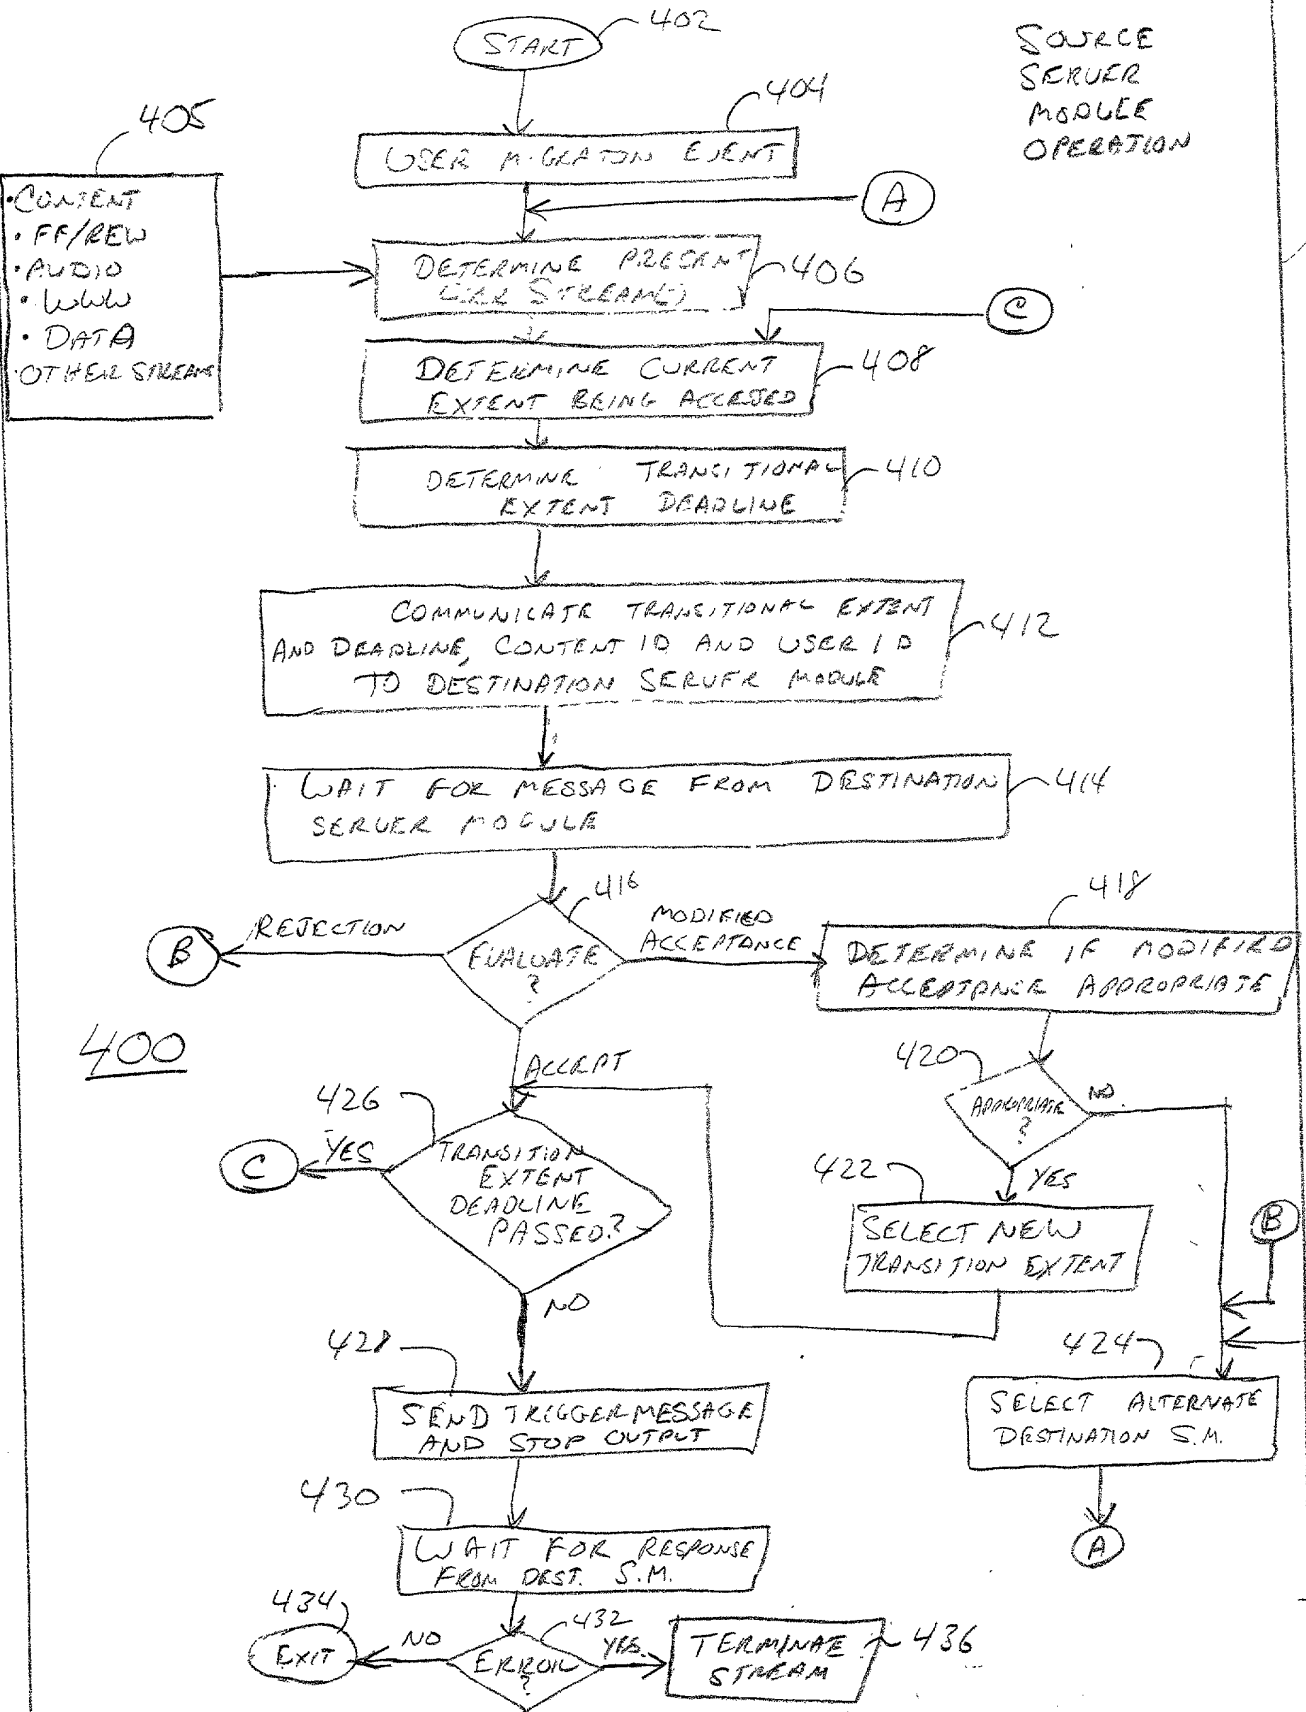 402
START
SOURCE
SERVER
MODULE
OPERATION
404
405
USER MIGRATON EVENT
A
• CONTENT
• FF/REW
• AUDIO
• WWW
• DATA
• OTHER STREAMS
DETERMINE PRESENT
STREAM(S)
406
C
DETERMINE CURRENT
EXTENT BEING ACCESSED
408
DETERMINE TRANSITIONAL
EXTENT DEADLINE
410
COMMUNICATE TRANSITIONAL EXTENT
AND DEADLINE, CONTENT ID AND USER ID
TO DESTINATION SERVER MODULE
412
WAIT FOR MESSAGE FROM DESTINATION
SERVER MODULE
414
416
418
REJECTION
MODIFIED
ACCEPTANCE
B
EVALUATE
?
DETERMINE IF MODIFIED
ACCEPTANCE APPROPRIATE
400
ACCEPT
420
APPROPRIATE
?
NO
426
YES
C
TRANSITION
EXTENT
DEADLINE
PASSED?
422
YES
SELECT NEW
TRANSITION EXTENT
B
NO
428
424
SEND TRIGGER MESSAGE
AND STOP OUTPUT
SELECT ALTERNATE
DESTINATION S.M.
430
WAIT FOR RESPONSE
FROM DEST. S.M.
A
434
432
EXIT
NO
ERROR
?
YES
TERMINAE
STREAM
436